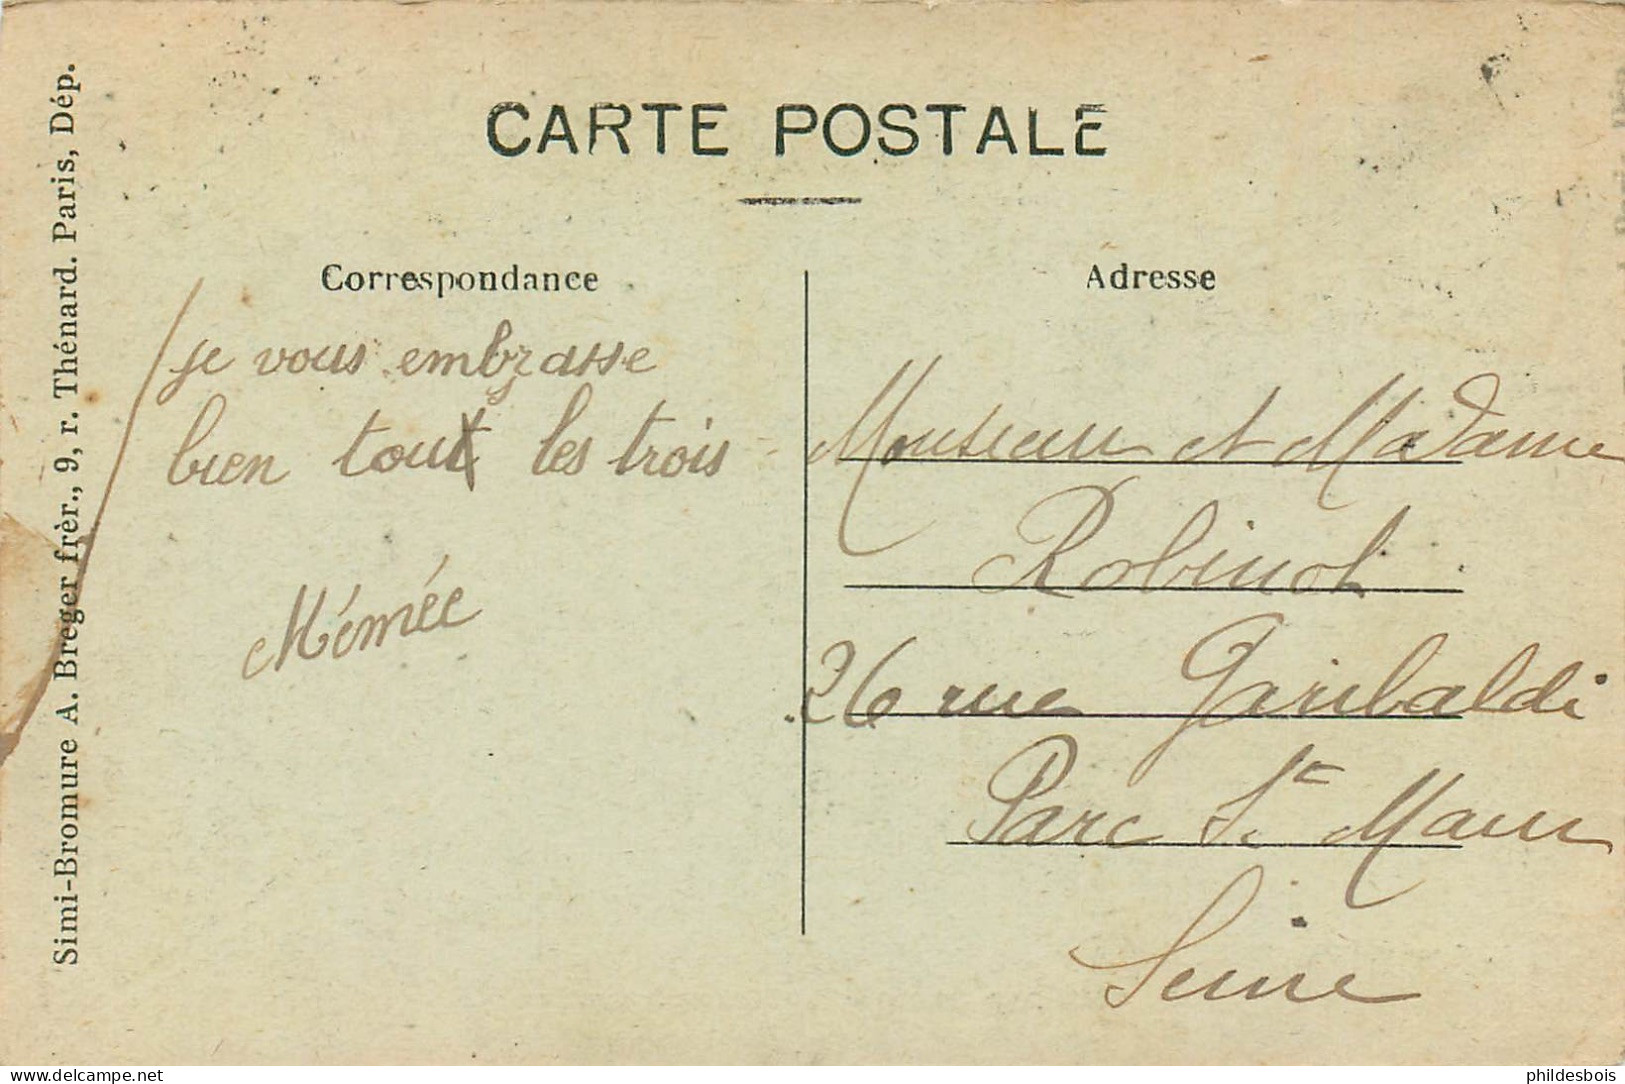 CARTE POSTALE
Simi-Bromure A. Breger frèr., 9, r. Thénard. Paris, Dép.
Correspondance
je vous embrasse
bien tout les trois
Mémée
Adresse
Monsieur et Madame
Robinot
26 rue Garibaldi
Parc St Maur
Seine
delcampe.net
phildesbois